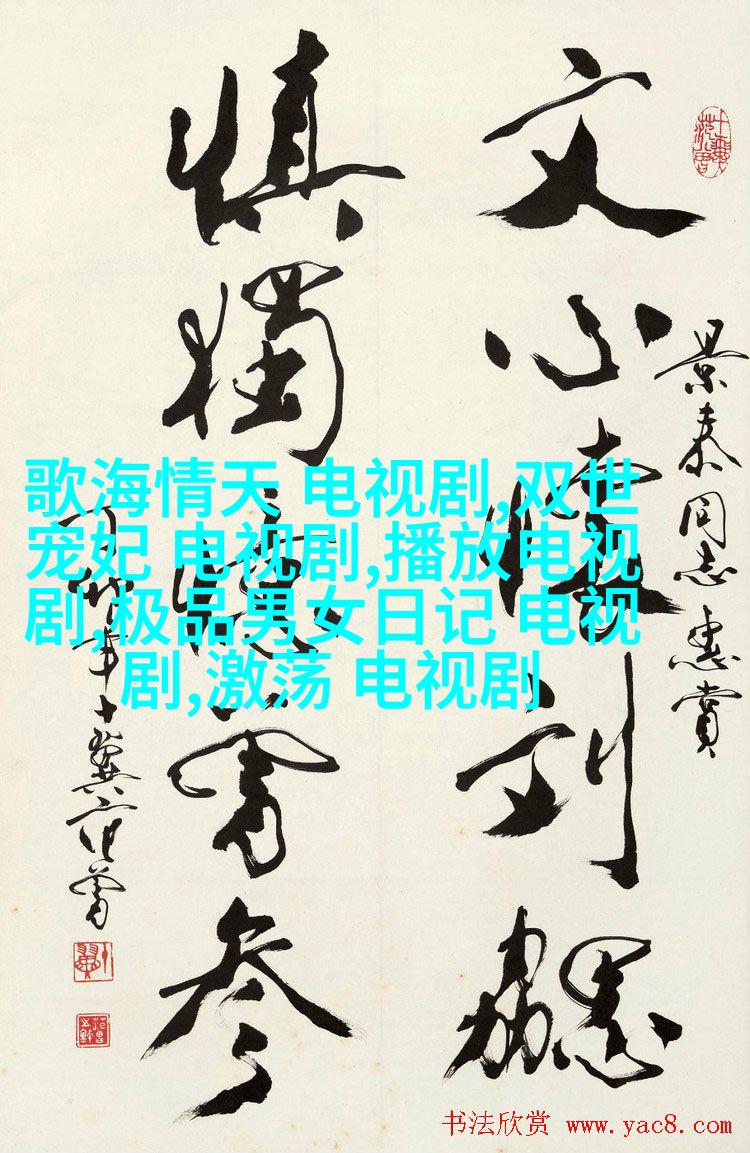 景泰同志惠賞
文心懷刘勰
慎獨曾參
丁卯年十翼范曾
歌海情天 电视剧,双世
宠妃 电视剧,播放电视
剧,极品男女日记 电视
剧,激荡 电视剧
书法欣赏 www.yac8.com